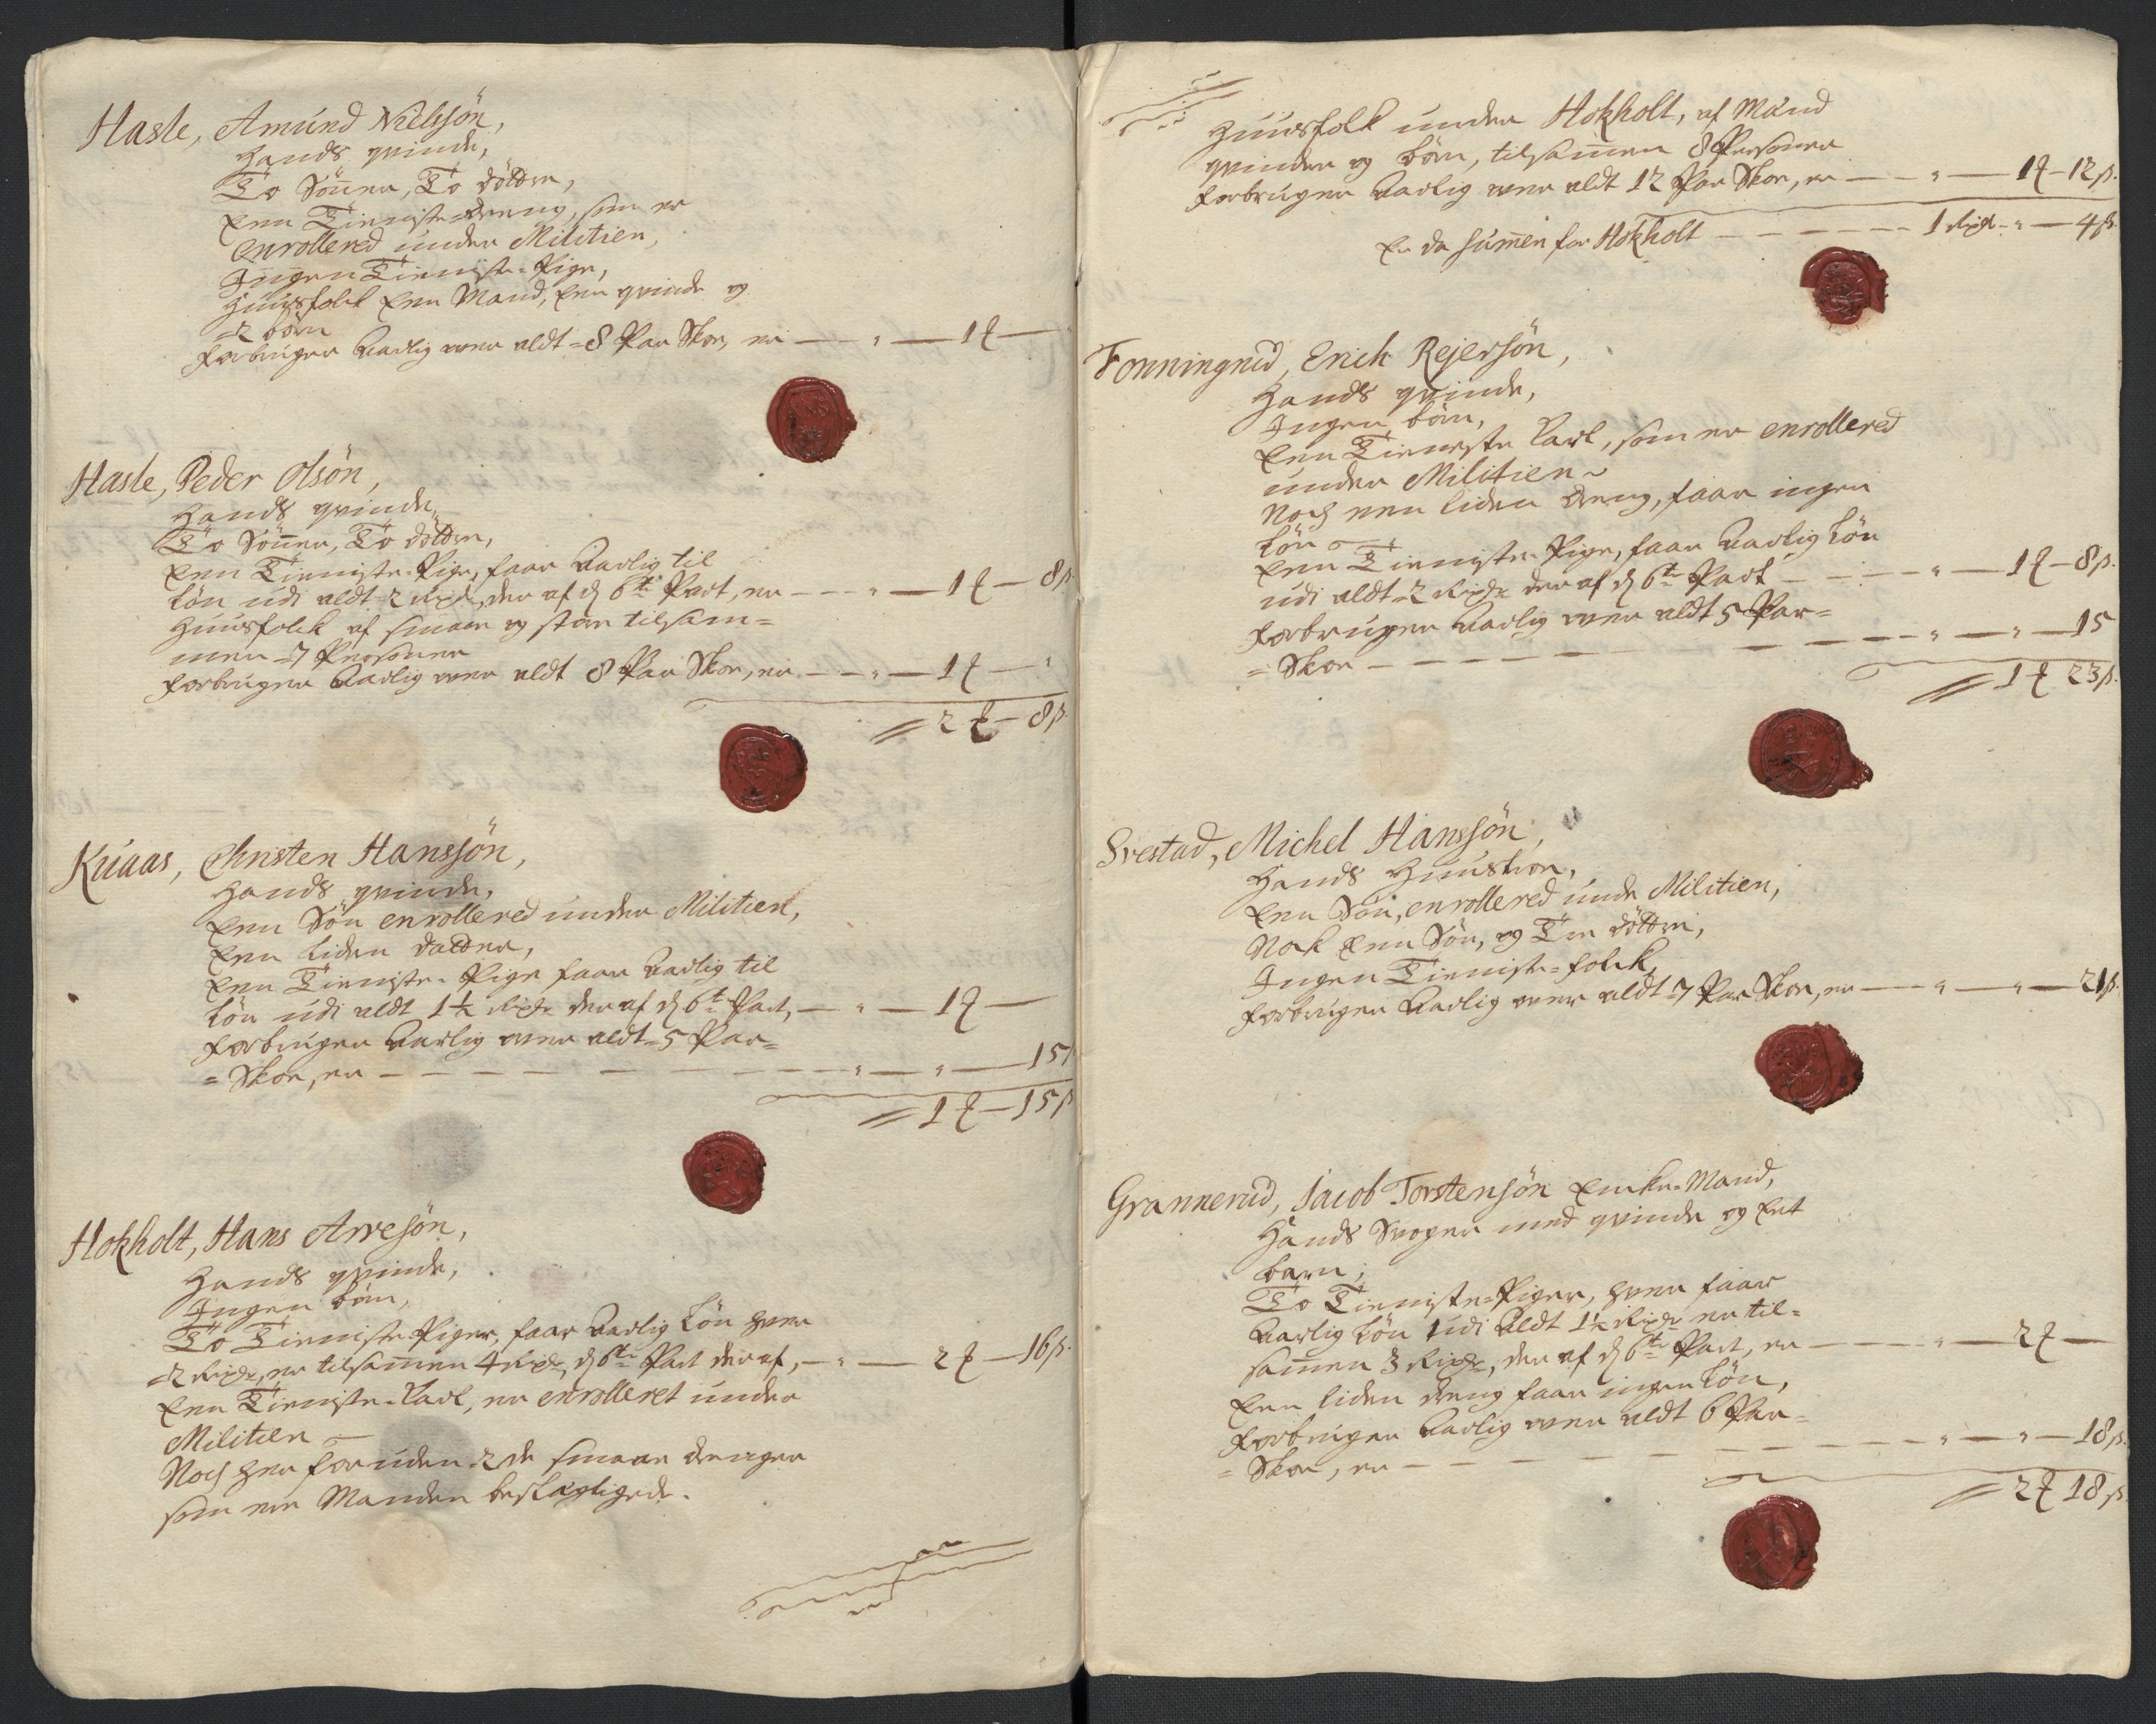 Hasle, Amund Nielssøn,
Hands qvinde,
To Sönner, To döttre,
Een Tieniste-Dreng, som er
enrollered under Militien,
Ingen Tieniste-Pige,
Huusfolck Een Mand, Een qvinde og
2 börn
forbruger Aarlig over aldt 8 Par Skoe, er — — " — 1 —
Hasle, Peder Olsön,
Hands qvinde,
To Sönner, To döttre,
Een Tieniste-Pige, faar Aarlig til
Lön udi aldt 2 Rixdr, der af d 6te Part, er — — " — 1 — 8 ß
Huusfolck af smaae og store tilsam=
men 7 Personer
forbruger Aarlig over aldt 8 Par Skoe, er — — " — 1 — "
2 — 8 ß
Kuaas, Christen Hanssön,
Hands qvinde,
Een Sön enrollered under Militien,
Een liden datter,
Een Tieniste-Pige faar Aarlig til
Lön udi aldt 1½ Rixdr der af d 6te Part, — " — 1 —
forbruger Aarlig over aldt 5 Par=
=Skoe, er — — — — " — " — 15
1 — 15 ß
Hokholt, Hans Arvesön,
Hands qvinde,
Ingen börn,
To Tieniste-Piger, faar Aarlig Lön hver
2 Rixdr, er tilsam̄en 4 Rixdr, d 6te Part der af, — " — 2 — 16 ß.
Een Tieniste-Karl, er enrolleret under
Militien —
Noch her foruden 2de smaae drenger
som ere Manden beslægtigede.
Huusfolk under Hokholt, af Mand
qvinder og börn, tilsam̄en 8 Personer
forbruger Aarlig over aldt 12 Par Skoe, er — — " — 1 — 12 ß.
Er da Sum̄en for Hokholt — — — — 1 Rixdr — " — 4 ß.
Fonningrud, Erich Rejersön,
Hands qvinde,
Ingen börn,
Een Tieneste Karl, som er enrollered
under Militien
Noch een liden dreng, faar ingen
Lön —
Een Tieniste-Pige, faar Aarlig Lön
udi aldt 2 Rixdr der af d 6te Part — — — " — 1 — 8 ß.
forbruger Aarlig over aldt 5 Par=
=Skoe — — — — — " — " — 15
1 23 ß.
Svestad, Michel Hanssön,
Hands Huustroe,
Een Sön, enrollered unde Militien,
Nok Een Sön, og Tre döttre,
Ingen Tieniste-folck,
forbruger Aarlig over aldt 7 Par Skoe, er — — " — " — 21 ß.
Grannerud, Jacob Torstensön Encke-Mand,
Hands Svoger med qvinde og Eet
barn,
To Tieniste-Piger, hver faar
Aarlig Lön udi Aldt 1½ Rixdr er til=
sam̄en 3 Rixdr, der af d 6te Part, er — — — " — 2 —
Een liden dreng faar ingen Lön,
forbruger Aarlig over aldt 6 Par=
=Skoe, er — — — — — " — " — 18 ß.
2 18 ß.